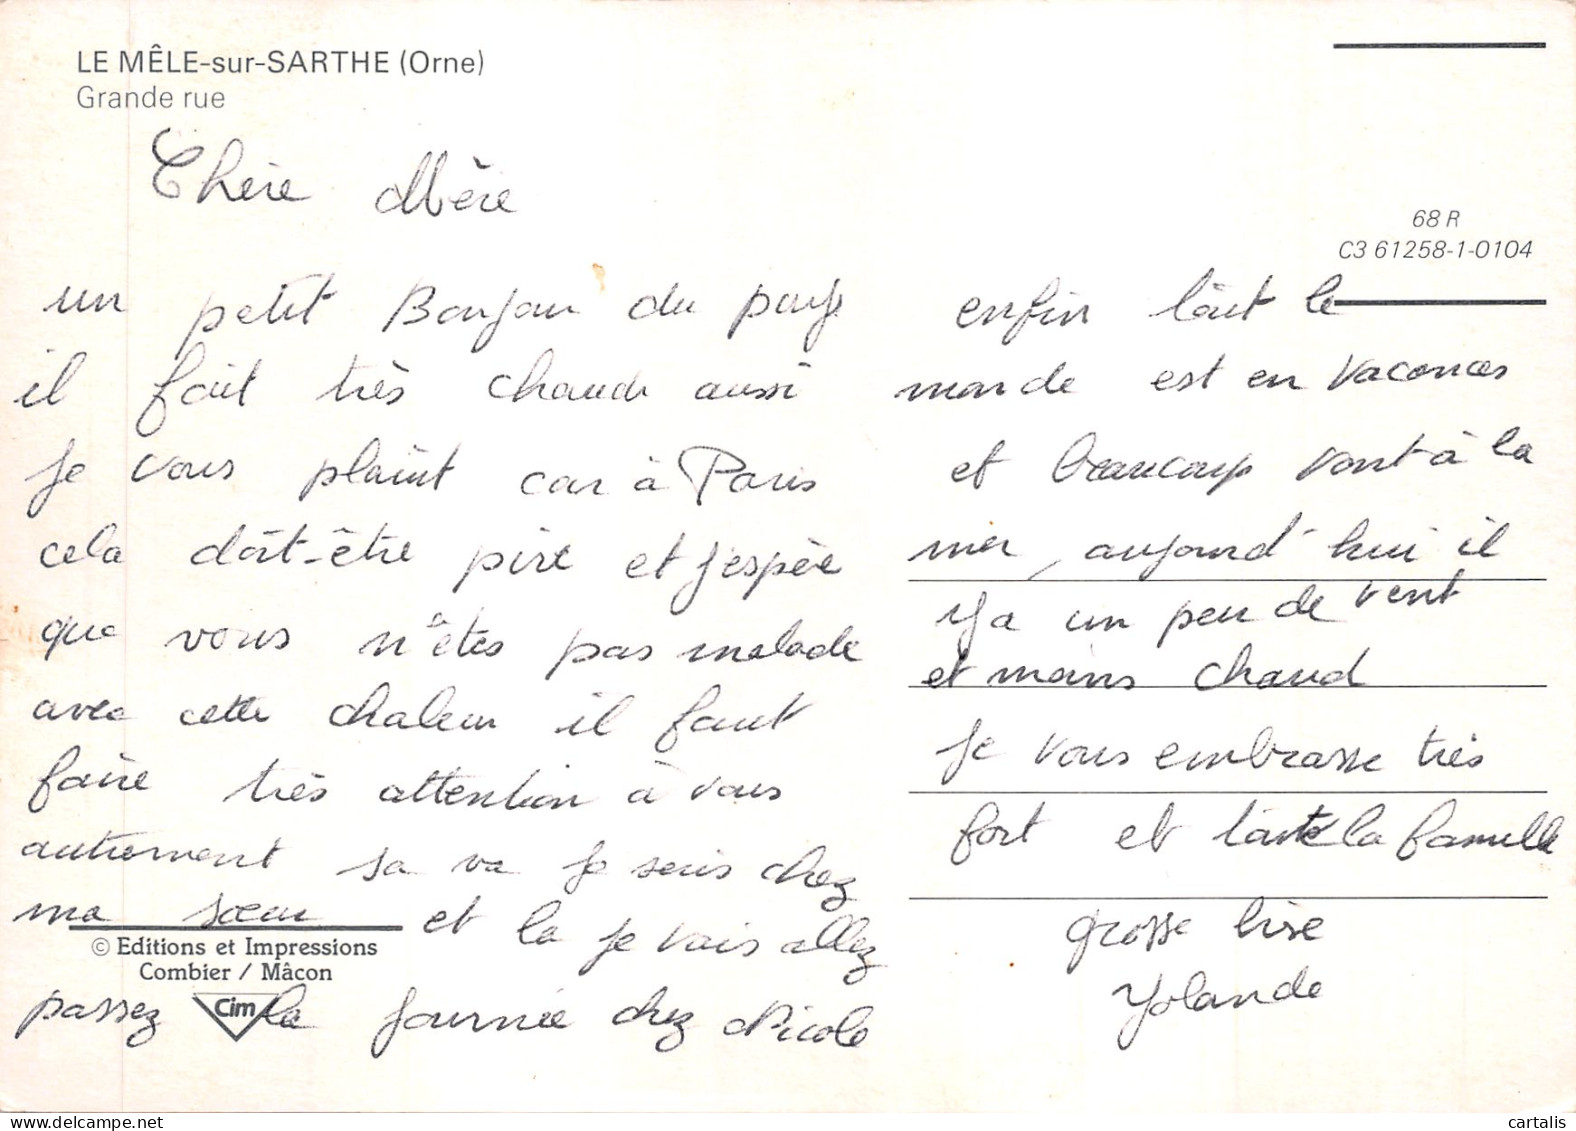 LE MÊLE-sur-SARTHE (Orne)
Grande rue
Chère Mère
un petit Bonjour du pays
il fait très chaud aussi
je vous plaint car à Paris
cela doit-être pire et j'espère
que vous n'êtes pas malade
avec cette chaleur il faut
faire très attention à vous
autrement sa va je suis chez
ma sœur et la je vais allez
passez la journée chez Nicole
© Editions et Impressions
Combier / Mâcon
Cim
68 R
C3 61258-1-0104
enfin tout le
monde est en vacances
et beaucoup vont à la
mer, aujourd'hui il
y a un peu de vent
et moins chaud
je vous embrasse très
fort et toute la famille
grosse bise
Yolande
cartalis
www.delcampe.net